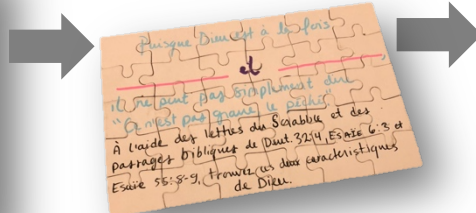 Puisque Dieu est à la fois
et
il ne peut pas simplement dire
"Ce n'est pas grave le péché"
À l'aide des lettres du Scrabble et des
passages bibliques de Deut. 32:4, Esaïe 6:3 et
Esaïe 55:8-9, trouvez ces deux caractéristiques
de Dieu.